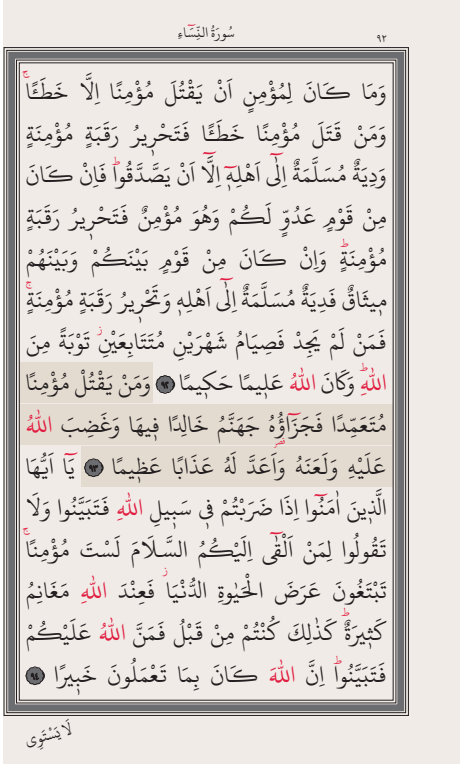 ٩٢ سُورَةُ النِّسَاءِ
وَمَا كَانَ لِمُؤْمِنٍ اَنْ يَقْتُلَ مُؤْمِنًا اِلَّا خَطَـًٔاۚ
وَمَنْ قَتَلَ مُؤْمِنًا خَطَـًٔا فَتَحْر۪يرُ رَقَبَةٍ مُؤْمِنَةٍ
وَدِيَةٌ مُسَلَّمَةٌ اِلٰٓى اَهْلِه۪ٓ اِلَّٓا اَنْ يَصَّدَّقُواۜ فَاِنْ كَانَ
مِنْ قَوْمٍ عَدُوٍّ لَكُمْ وَهُوَ مُؤْمِنٌ فَتَحْر۪يرُ رَقَبَةٍ
مُؤْمِنَةٍۜ وَاِنْ كَانَ مِنْ قَوْمٍ بَيْنَكُمْ وَبَيْنَهُمْ
م۪يثَاقٌ فَدِيَةٌ مُسَلَّمَةٌ اِلٰٓى اَهْلِه۪ وَتَحْر۪يرُ رَقَبَةٍ مُؤْمِنَةٍۚ
فَمَنْ لَمْ يَجِدْ فَصِيَامُ شَهْرَيْنِ مُتَتَابِعَيْنِۘ تَوْبَةً مِنَ
اللّٰهِۜ وَكَانَ اللّٰهُ عَل۪يمًا حَك۪يمًا ٩٢ وَمَنْ يَقْتُلْ مُؤْمِنًا
مُتَعَمِّدًا فَجَزَٓاؤُ۬هُ جَهَنَّمُ خَالِدًا ف۪يهَا وَغَضِبَ اللّٰهُ
عَلَيْهِ وَلَعَنَهُ وَاَعَدَّ لَهُ عَذَابًا عَظ۪يمًا ٩٣ يَٓا اَيُّهَا
الَّذ۪ينَ اٰمَنُٓوا اِذَا ضَرَبْتُمْ ف۪ي سَب۪يلِ اللّٰهِ فَتَبَيَّنُوا وَلَا
تَقُولُوا لِمَنْ اَلْقٰٓى اِلَيْكُمُ السَّلَامَ لَسْتَ مُؤْمِنًاۚ
تَبْتَغُونَ عَرَضَ الْحَيٰوةِ الدُّنْيَاۘ فَعِنْدَ اللّٰهِ مَغَانِمُ
كَث۪يرَةٌۜ كَذٰلِكَ كُنْتُمْ مِنْ قَبْلُ فَمَنَّ اللّٰهُ عَلَيْكُمْ
فَتَبَيَّنُواۜ اِنَّ اللّٰهَ كَانَ بِمَا تَعْمَلُونَ خَب۪يرًا ٩٤
لَا يَسْتَوِي